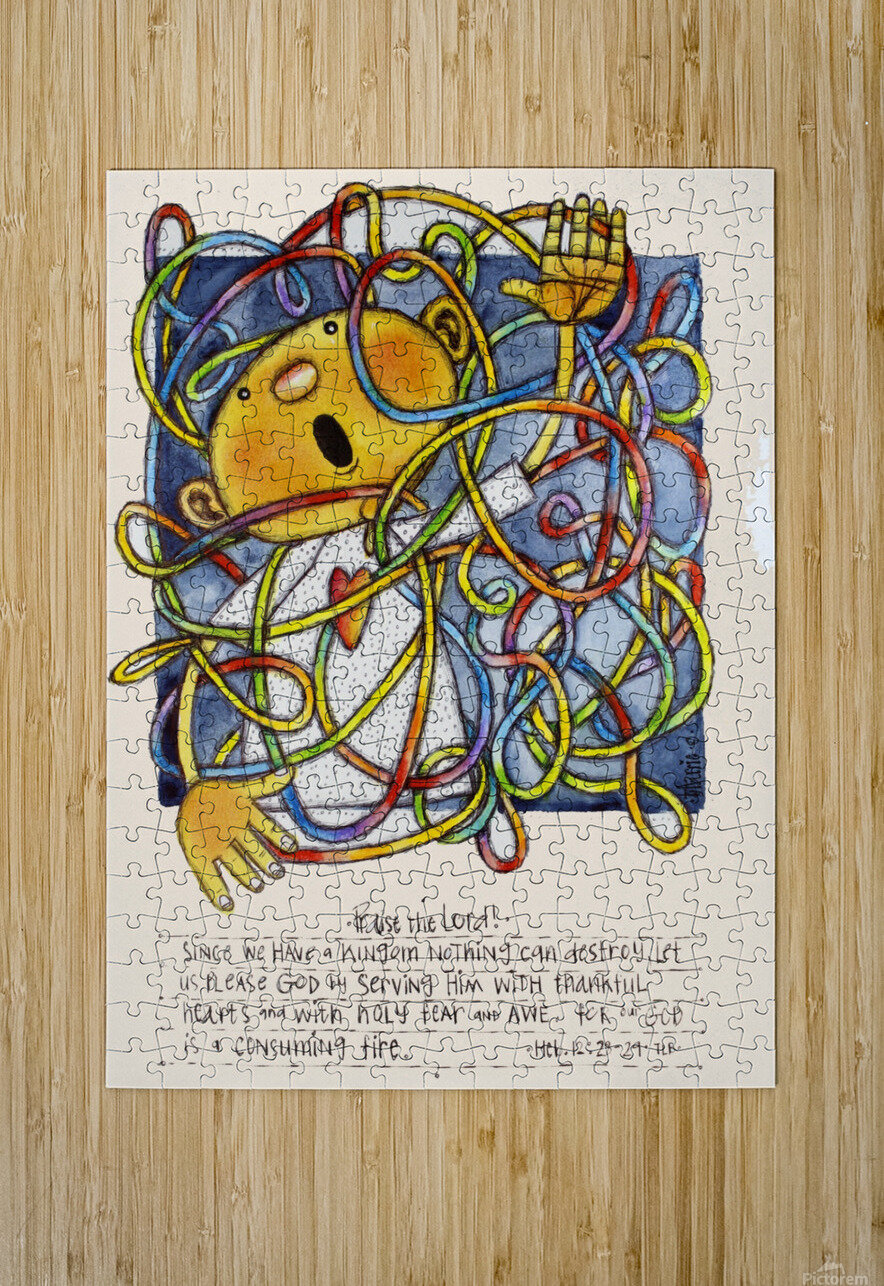 ·Praise the Lord!·
Since we have a Kingdom Nothing can destroy, let
us please GOD by serving Him with thankful
hearts and with holy fear and AWE. For our GOD
is a consuming fire.
·Heb. 12:28-29· TLB·
Pictorem